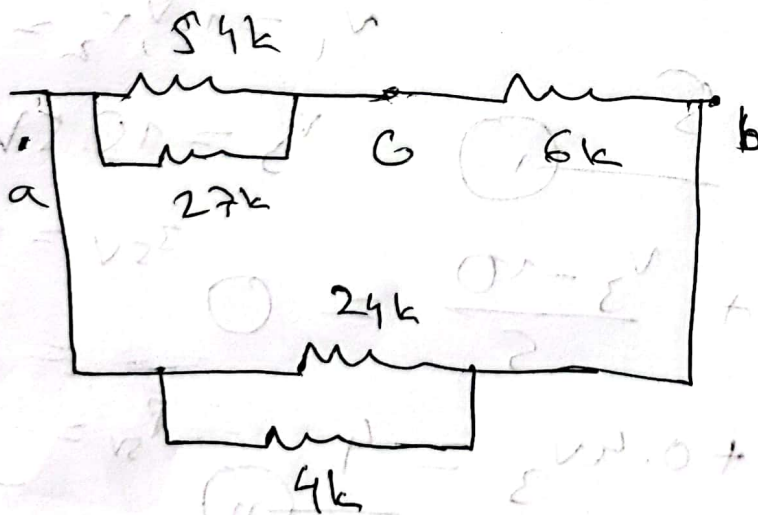 54k
a
27k
G
6k
b
24k
4k